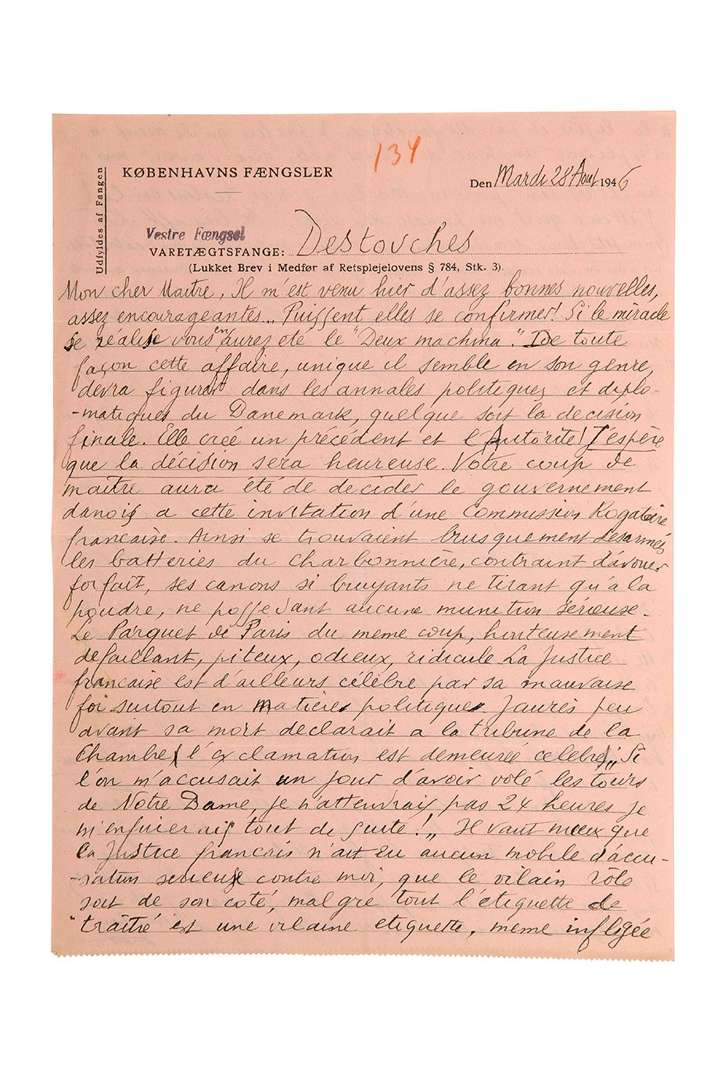 134
KØBENHAVNS FÆNGSLER
Den Mardi 28 Aout 1946
Udfyldes af Fangen
Vestre Fængsel
VARETÆGTSFANGE: Destouches
(Lukket Brev i Medfør af Retsplejelovens § 784, Stk. 3)
Mon cher Maitre, Il m'est venu hier d'assez bonnes nouvelles,
assez encourageantes.. Puissent elles se confirmer! Si le miracle
se réalise vous en aurez eté le "Deux machina". De toute
façon cette affaire, unique il semble en son genre,
devra figurer dans les annales politiques et diplo-
-matiques du Danemark, quelque soit la decision
finale. Elle creé un précédent et l'Autorite! J'espère
que la décision sera heureuse. Votre coup de
maitre aura été de decider le gouvernement
danois a cette invitation d'une Commission Rogatoire
française. Ainsi se trouvaient brusquement desarmées
les batteries du Charbonnière, contraint d'avouer
forfait, ses canons si bruyants ne tirant qu'à la
poudre, ne possedant aucune munition serieuse.
Le Parquet de Paris du meme coup, honteusement
defaillant, piteux, odieux, ridicule La Justice
francaise est d'ailleurs célèbre par sa mauvaise
foi surtout en matieres politiques Jaurès peu
avant sa mort declarait a la tribune de la
Chambre ( l'exclamation est demeureé celebre) „Si
l'on m'accusait un jour d'avoir volé les tours
de Notre Dame, je n'attendrais pas 24 heures je
m'enfuierais tout de suite!„ Il vaut mieux que
la Justice francais n'ait eu aucun mobile d'accu-
-sation serieuse contre moi, que le vilain role
soit de son coté, malgre tout l'étiquette de
"traitre" est une vilaine etiquette, meme infligée